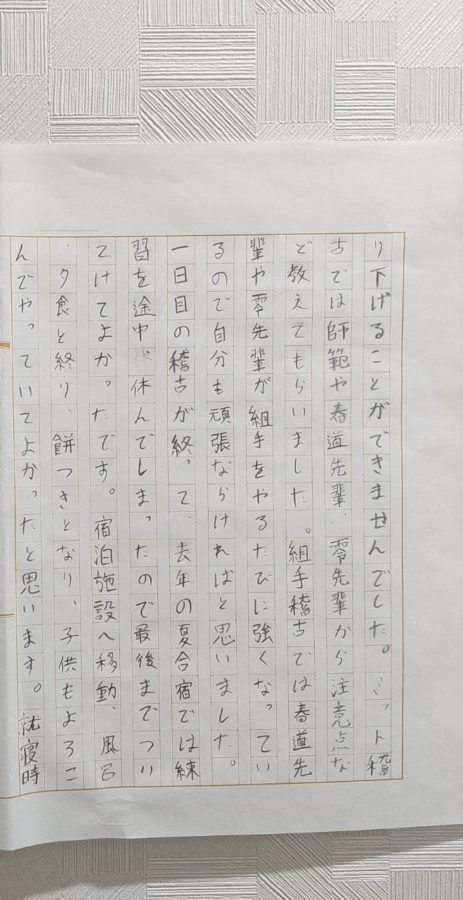 り下げることができませんでした。ミット稽
古では師範や春道先輩、零先輩から注意点な
ど教えてもらいました。組手稽古では春道先
輩や零先輩が組手をやるたびに強くなってい
るので自分も頑張ならければと思いました。
一日目の稽古が終って、去年の夏合宿では練
習を途中で休んでしまったので最後までつい
てけてよかったです。宿泊施設へ移動、風呂
、夕食と終り、餅つきとなり、子供もよろこ
んでやっていてよかったと思います。就寝時